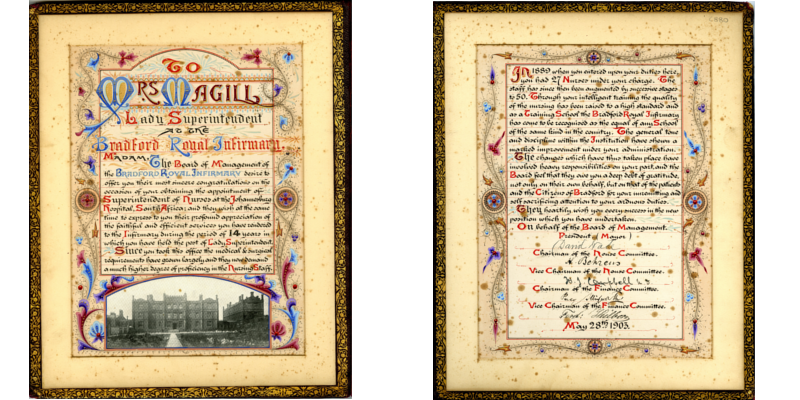 TO
MRS MAGILL
Lady Superintendent
AT THE
Bradford Royal Infirmary.
MADAM: The Board of Management of
the BRADFORD ROYAL INFIRMARY desire to
offer you their most sincere congratulations on the
occasion of your obtaining the appointment of
Superintendent of Nurses at the Johannesburg
Hospital, South Africa; and they wish at the same
time to express to you their profound appreciation of
the faithful and efficient services you have rendered
to the Infirmary during the period of 14 years in
which you have held the post of Lady Superintendent.
Since you took this office the medical & surgical
requirements have grown largely and they now demand
a much higher degree of proficiency in the Nursing Staff.
In 1889 when you entered upon your duties here,
you had 27 Nurses under your charge. The
staff has since then been augmented by successive stages
to 50. Through your intelligent training the quality
of the nursing has been raised to a high standard and
as a Training School the Bradford Royal Infirmary
has come to be recognised as the equal of any School
of the same kind in the country. The general tone
and discipline within the Institution have shown a
marked improvement under your administration.
The changes which have thus taken place have
involved heavy responsibilities on your part, and the
Board feel that they owe you a deep debt of gratitude,
not only on their own behalf, but on that of the patients
and the Citizens of Bradford for your unremitting and
self sacrificing attention to your arduous duties.
They heartily wish you every success in the new
position which you have undertaken.
On behalf of the Board of Management.
President of Mayor
David Wade
Chairman of the House Committee.
A Behrens
Vice Chairman of the House Committee.
Campbell
Chairman of the Finance Committee.
Vice Chairman of the Finance Committee.
May 28th 1903.